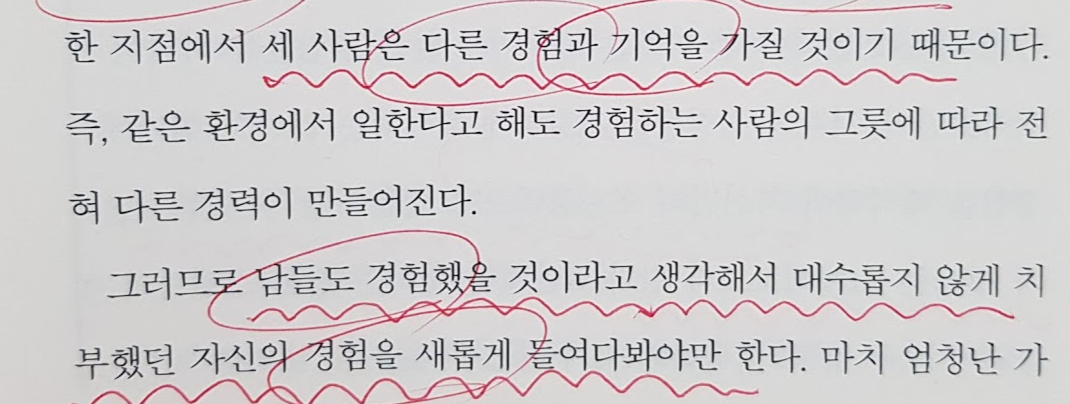 한 지점에서 세 사람은 다른 경험과 기억을 가질 것이기 때문이다.
즉, 같은 환경에서 일한다고 해도 경험하는 사람의 그릇에 따라 전
혀 다른 경력이 만들어진다.
그러므로 남들도 경험했을 것이라고 생각해서 대수롭지 않게 치
부했던 자신의 경험을 새롭게 들여다봐야만 한다. 마치 엄청난 가